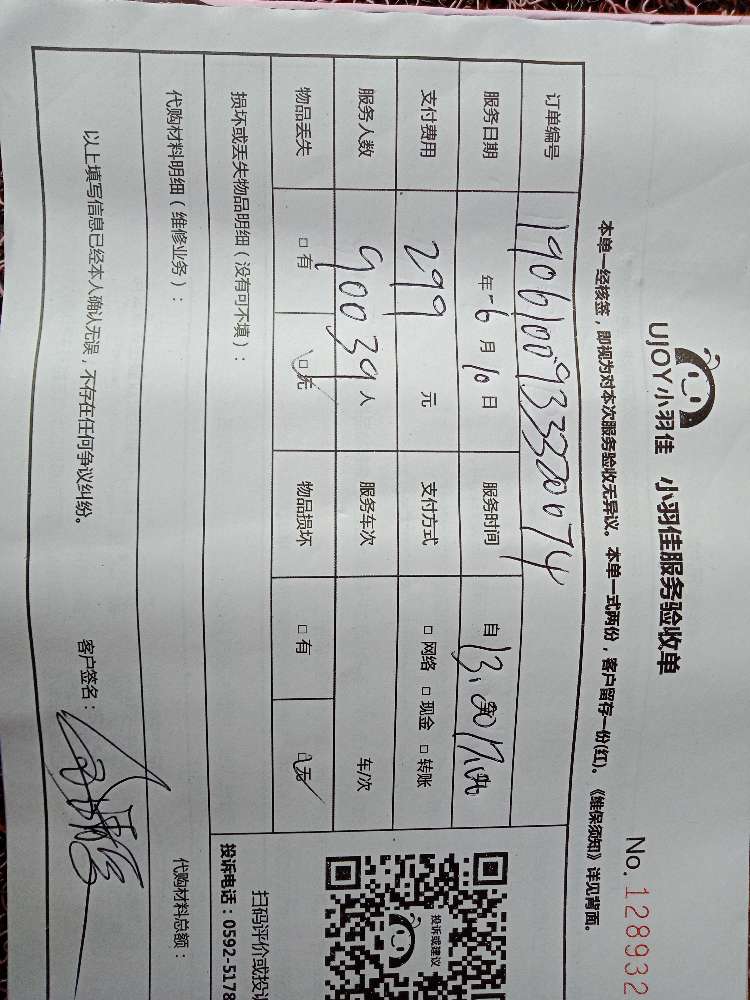 UJOY小羽佳 小羽佳服务验收单
No. 128932
本单一经核签，即视为对本次服务验收无异议。本单一式两份，客户留存一份(红)。《维保须知》详见背面。
订单编号 190610093350074
服务日期 年 6 月 10 日 服务时间 自 13:00
支付费用 299 元 支付方式 □ 网络 □ 现金 □ 转账
服务人数 90039 人 服务车次 车/次
物品丢失 □ 有 □ 无 物品损坏 □ 有 □ 无
损坏或丢失物品明细（没有可不填）：
投诉或建议
扫码评价或投
投诉电话：0592-5178
代购材料明细（维修业务）：
代购材料总额：
以上填写信息已经本人确认无误，不存在任何争议纠纷。
客户签名：